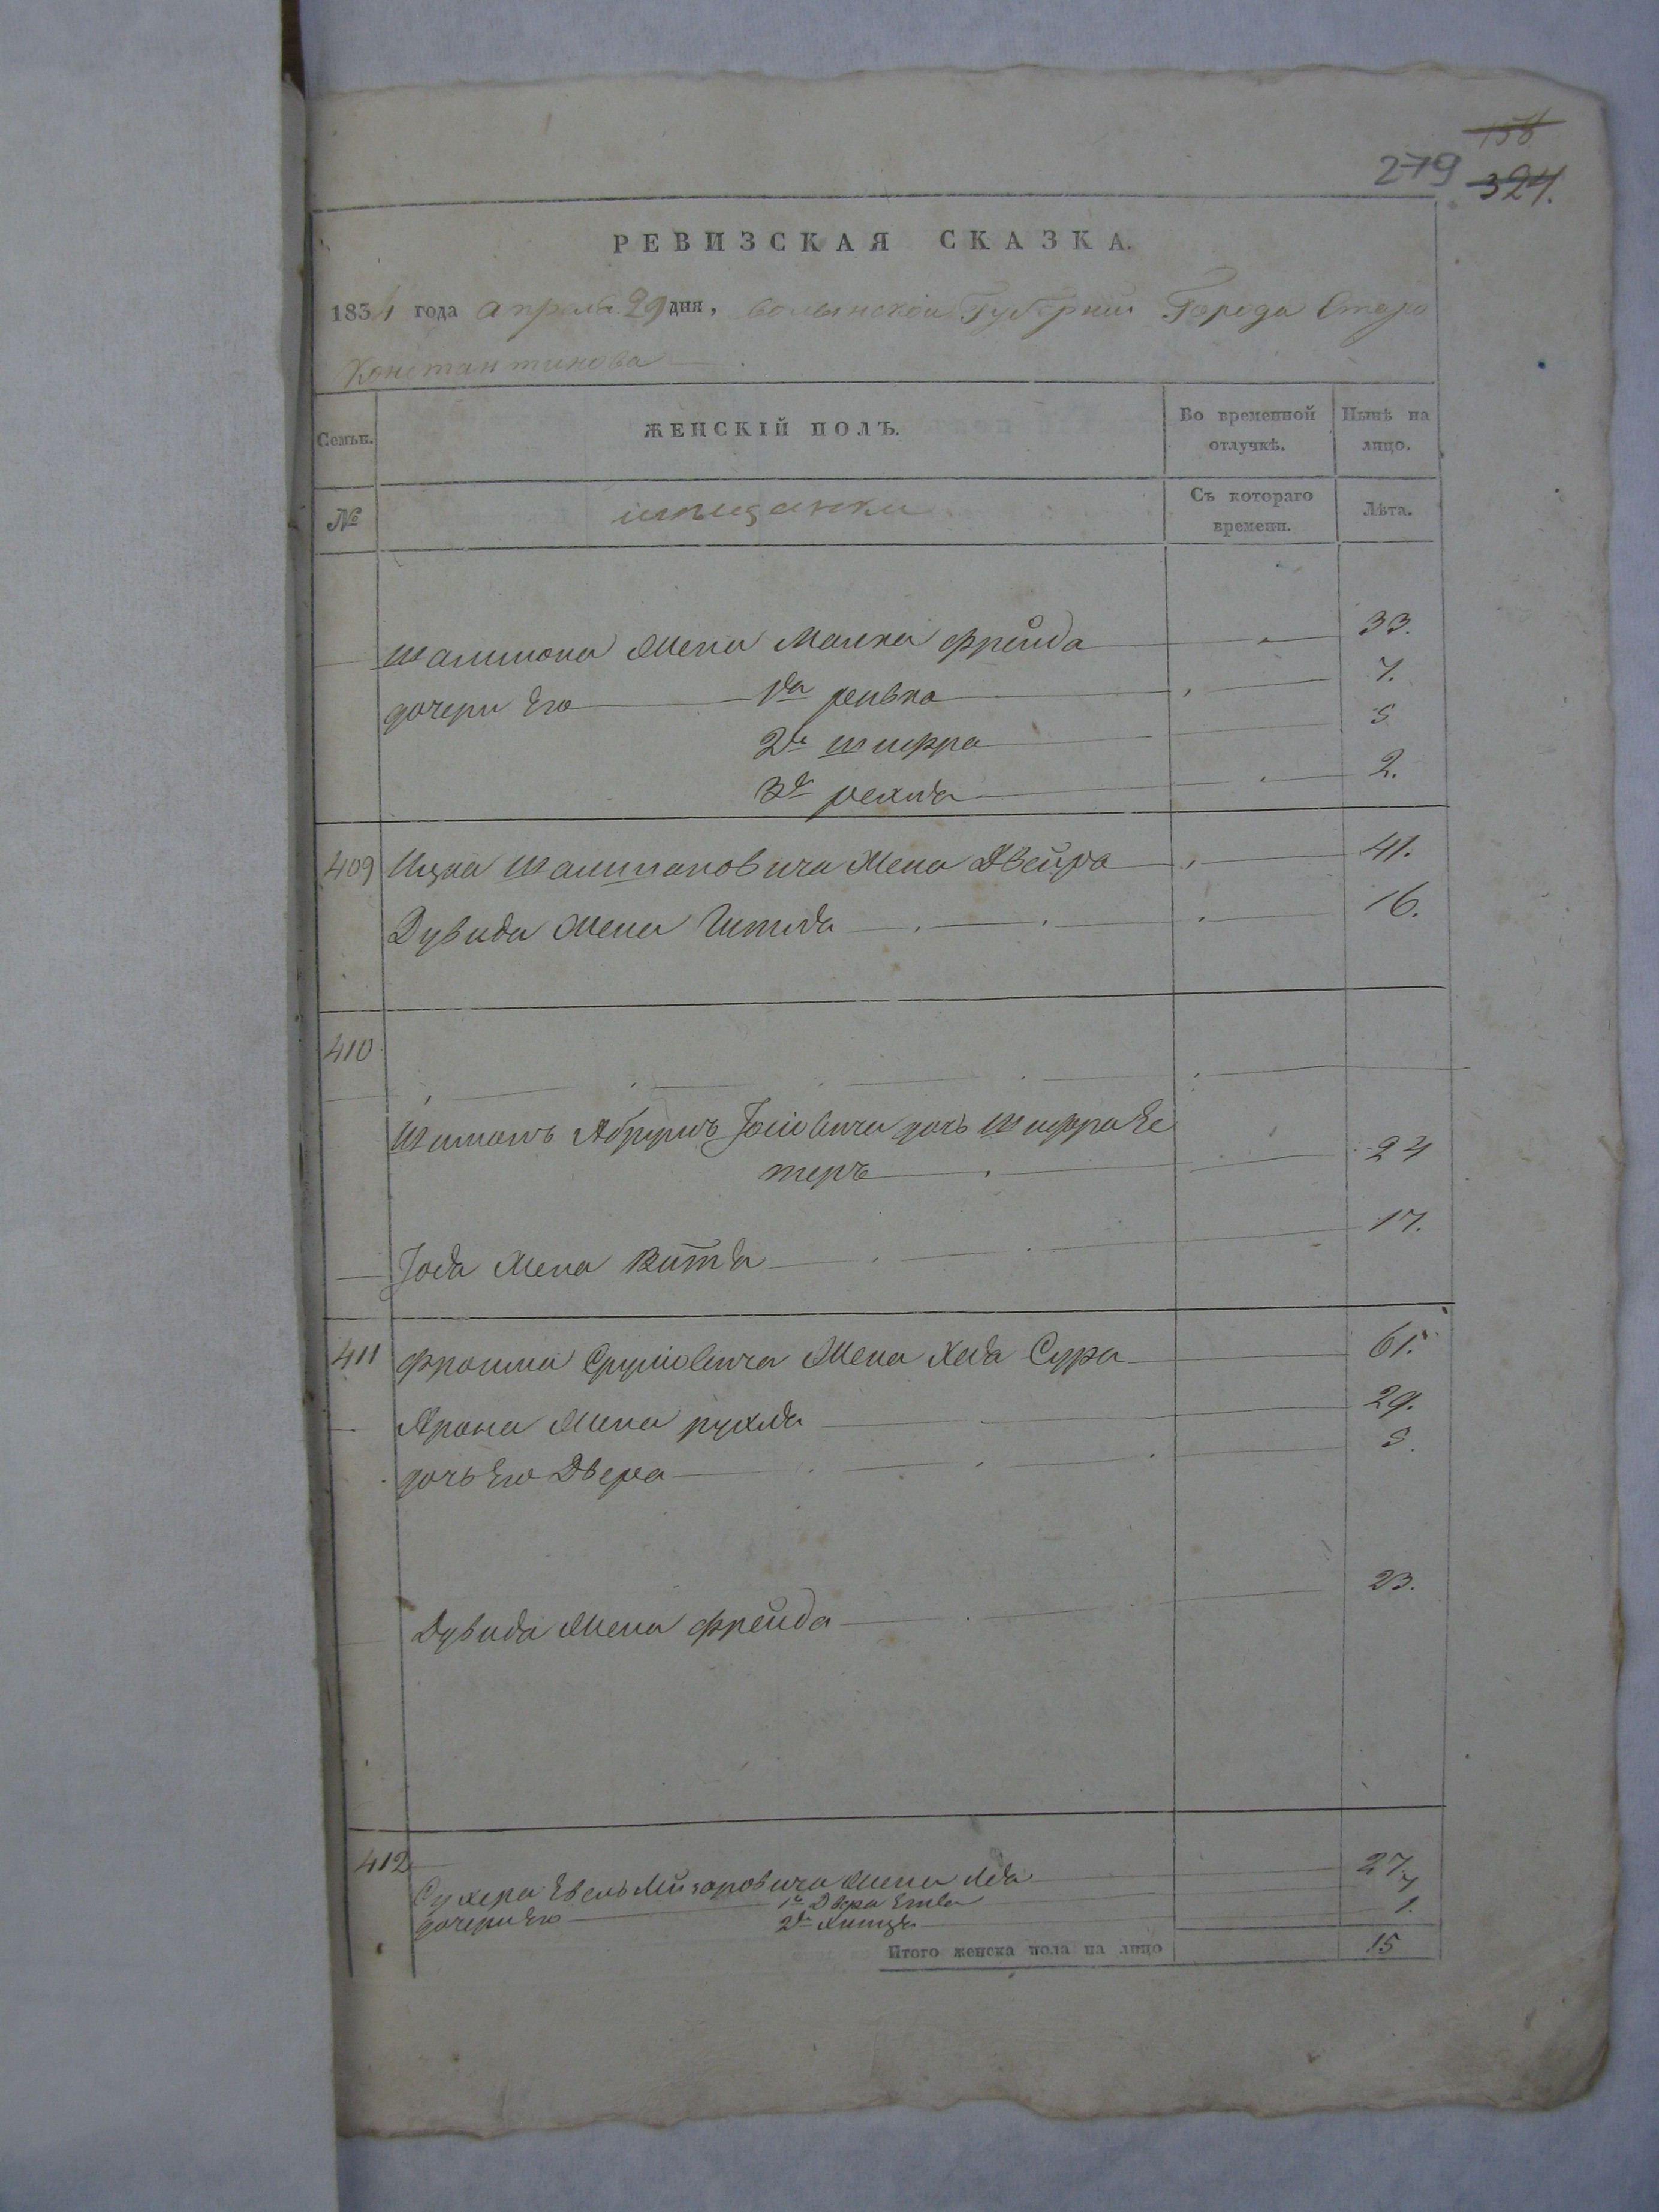 158
279 324.
РЕВИЗСКАЯ СКАЗКА.
1834 года апреля 29 дня, волынской Губернии Города Старо
Константинова
Семьи. ЖЕНСКІЙ ПОЛЪ. Во временной отлучкѣ. Нынѣ на лицо.
№ мѣщанки Съ котораго времени. Лѣта.
Шалиона Жена Малка фрейда 33.
дочери Его 1я ривка 7.
2я шифра 5
3я рехля 2.
409 Ицка Жена Двейра 41.
Дувида Жена Гитля 16.
410
дочь шифра Ес
теръ 24
Іося Жена 17.
411 фроима Сруліовича Жена Хая Сура 61.
Арона Жена рухля 29.
дочь Его Двера 5.
Дувида Жена фрейда 23.
412 Сухера Жена 27.
дочери Его 1я Двера 7
2я 1.
Итого женска пола на лицо 15